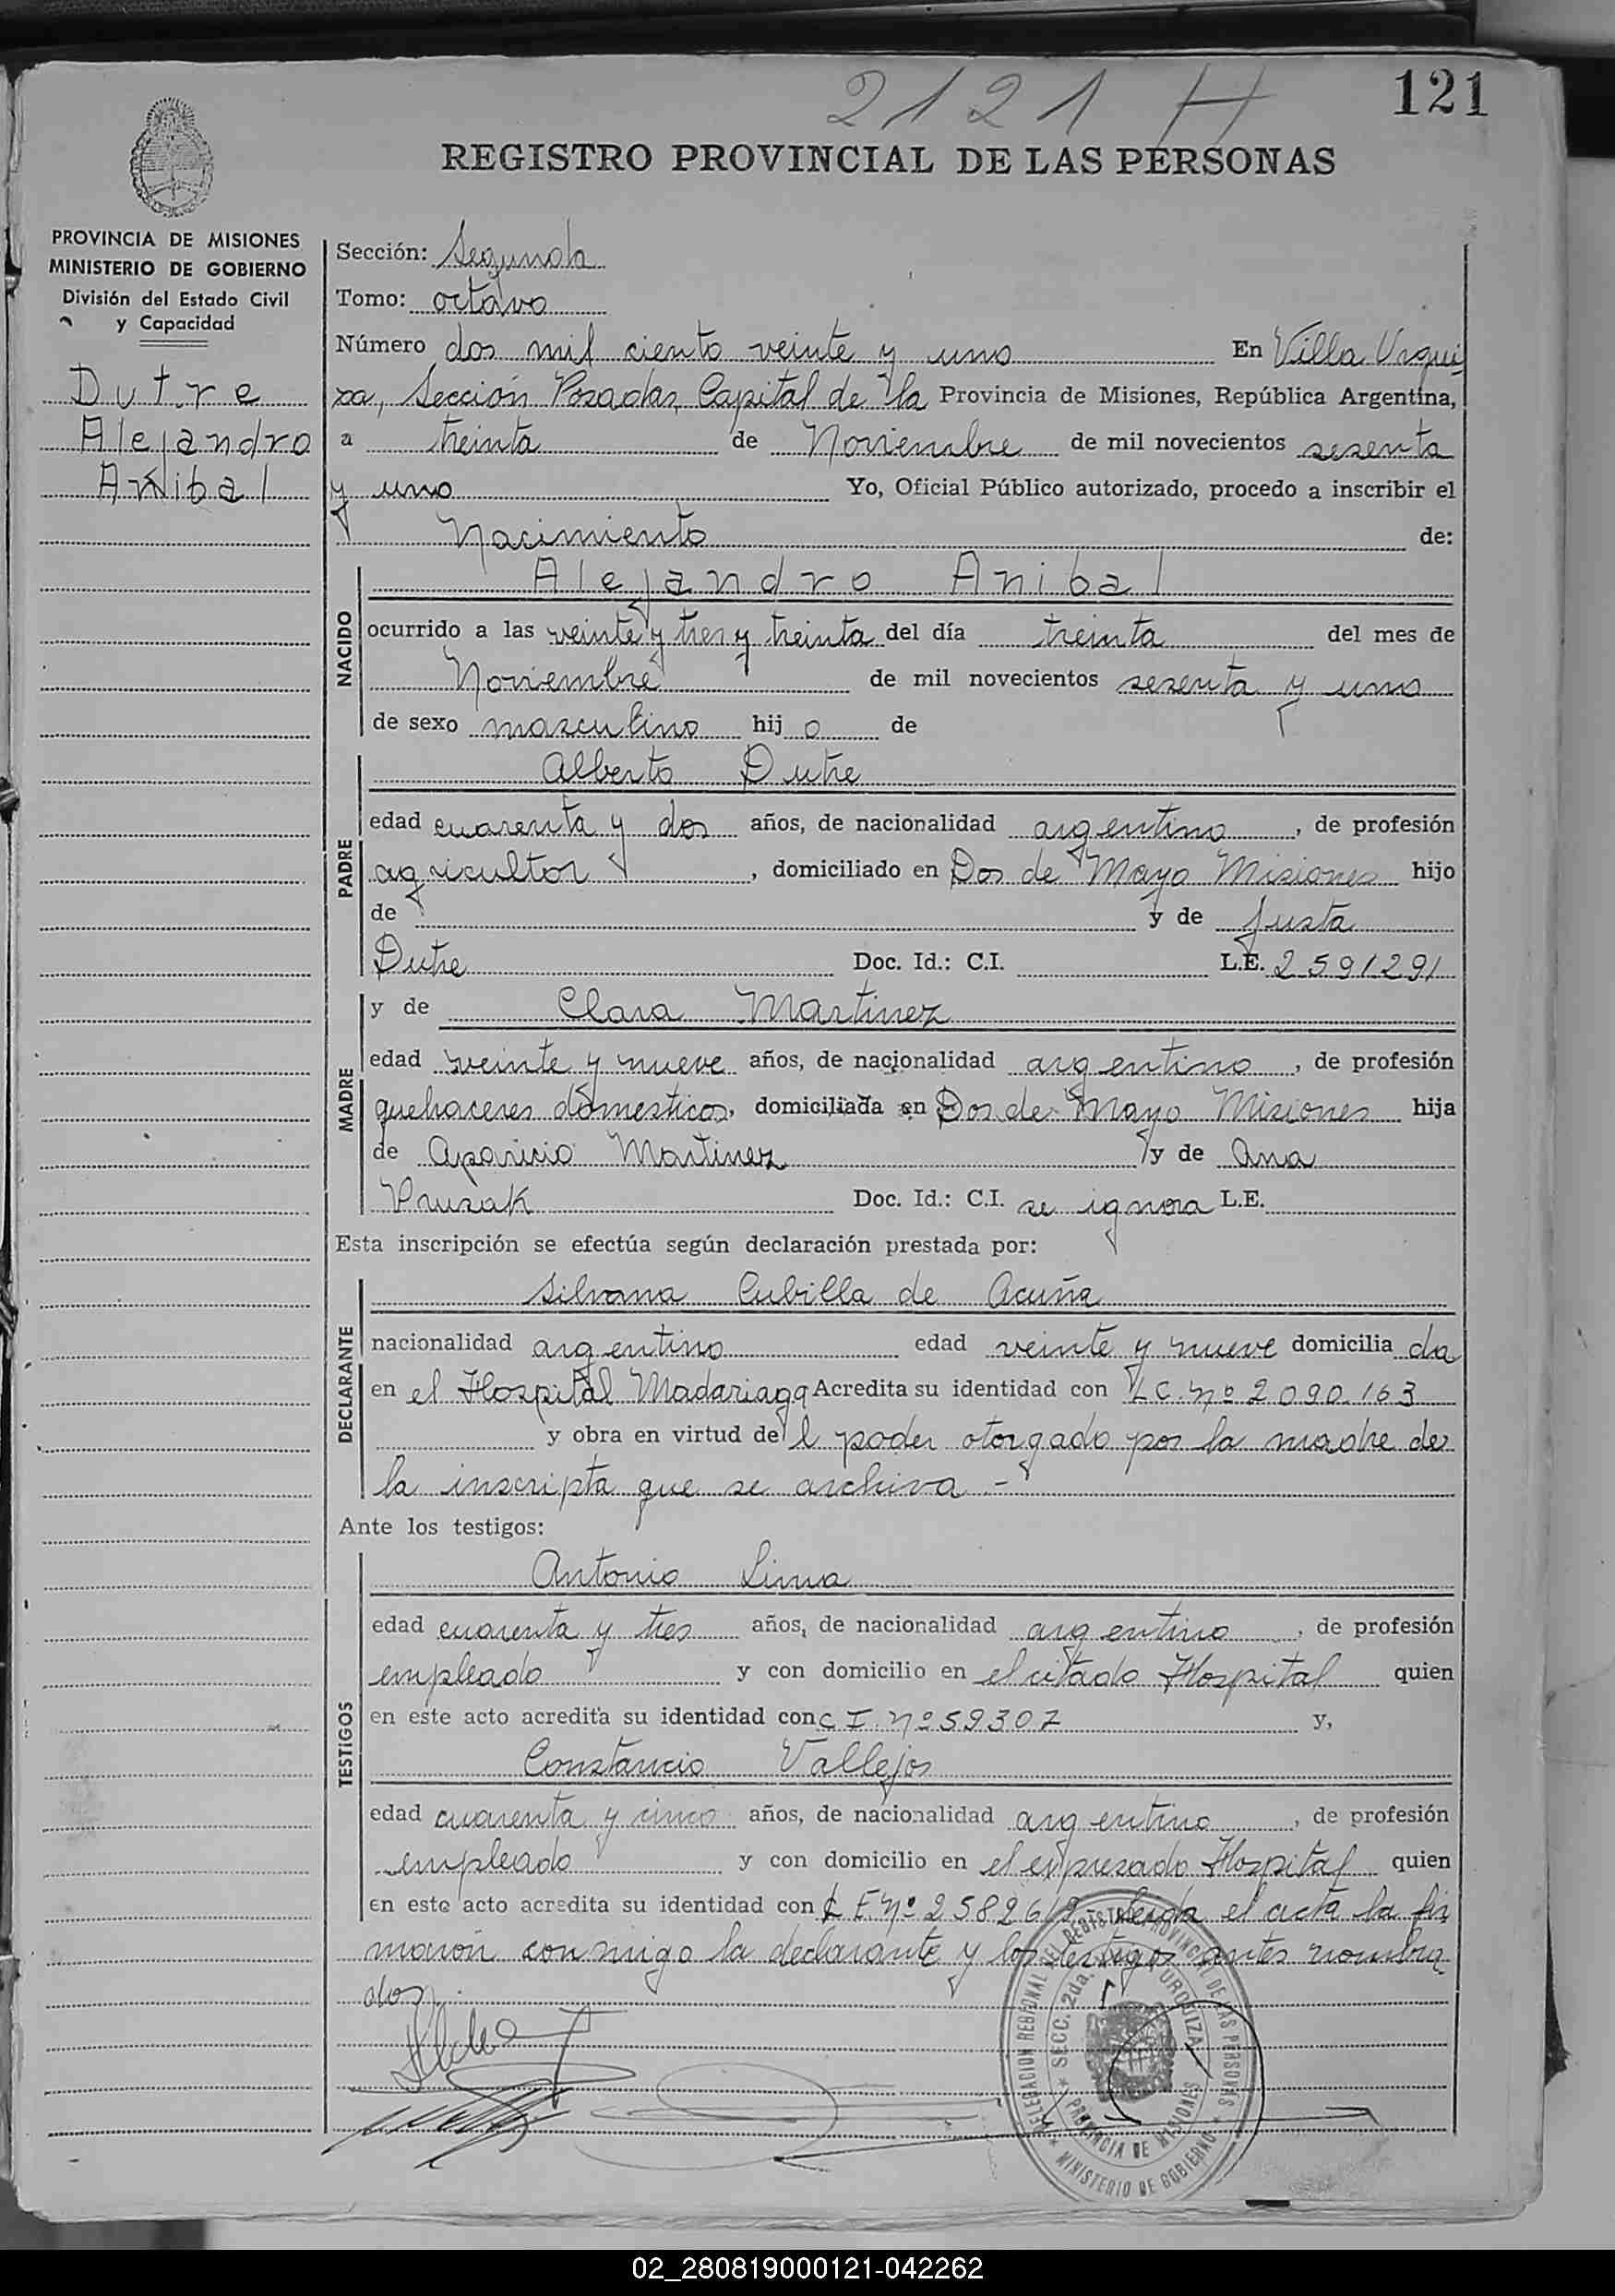 2121 H
121
REGISTRO PROVINCIAL DE LAS PERSONAS
PROVINCIA DE MISIONES
MINISTERIO DE GOBIERNO
División del Estado Civil
y Capacidad
Dutre
Alejandro
Anibal
Sección: Segunda
Tomo: octavo
Número dos mil ciento veinte y uno En Villa Urqui
za, Sección Posadas, Capital de la Provincia de Misiones, República Argentina,
a treinta de Noviembre de mil novecientos sesenta
y uno Yo, Oficial Público autorizado, procedo a inscribir el
Nacimiento de:
NACIDO
Alejandro Anibal
ocurrido a las veinte y tres y treinta del día treinta del mes de
Noviembre de mil novecientos sesenta y uno
de sexo masculino hij o de
PADRE
Alberto Dutre
edad cuarenta y dos años, de nacionalidad argentino, de profesión
agricultor, domiciliado en Dos de Mayo Misiones hijo
de y de Justa
Dutre Doc. Id.: C.I. L.E. 2591291
MADRE
y de Clara Martinez
edad veinte y nueve años, de nacionalidad argentino, de profesión
quehaceres domesticos, domiciliada en Dos de Mayo Misiones hija
de Aparicio Martinez y de Ana
Pruzak Doc. Id.: C.I. se ignora L.E.
Esta inscripción se efectúa según declaración prestada por:
DECLARANTE
Silvana Cubilla de Acuña
nacionalidad argentino edad veinte y nueve domicilia da
en el Hospital Madariaga Acredita su identidad con L C. Nº 2090.163
y obra en virtud de l poder otorgado por la madre de
la inscripta que se archiva.-
Ante los testigos:
TESTIGOS
Antonio Lima
edad cuarenta y tres años, de nacionalidad argentino, de profesión
empleado y con domicilio en el citado Hospital quien
en este acto acredita su identidad con C I. Nº 59307 y,
Constancio Vallejos
edad cuarenta y cinco años, de nacionalidad argentino, de profesión
empleado y con domicilio en el expresado Hospital quien
en este acto acredita su identidad con L E. Nº 2582619- Leida el acta la fir
maron conmigo la declarante y los testigos antes nombra
dos.
DELEGACION REGIONAL DEL REGISTRO PROVINCIAL DE LAS PERSONAS
SECC. 2da. URQUIZA
PROVINCIA DE MISIONES
MINISTERIO DE GOBIERNO
02_280819000121-042262